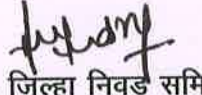 जिल्हा निवड समि